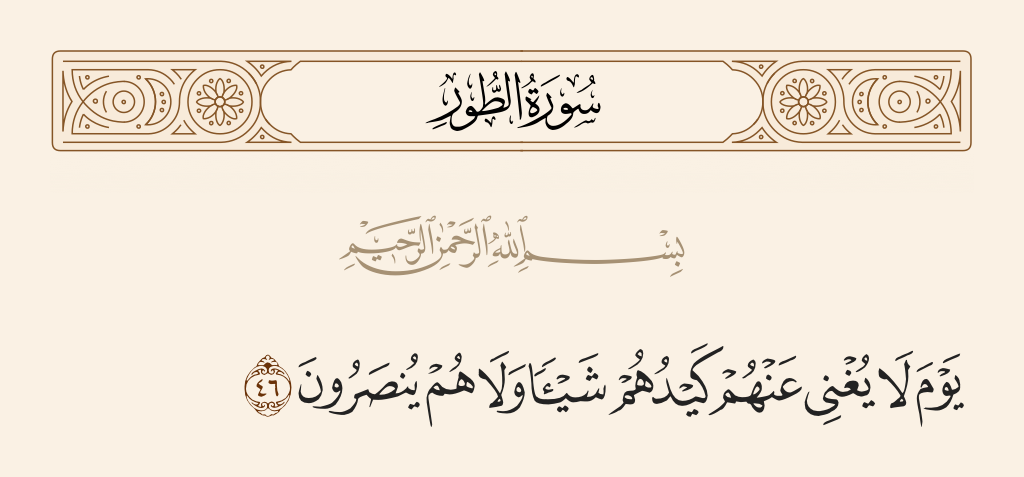 سُورَةُ الطُّورِ
بِسْمِ ٱللَّهِ ٱلرَّحْمَٰنِ ٱلرَّحِيمِ
يَوْمَ لَا يُغْنِى عَنْهُمْ كَيْدُهُمْ شَيْـًٔا وَلَا هُمْ يُنصَرُونَ ٤٦